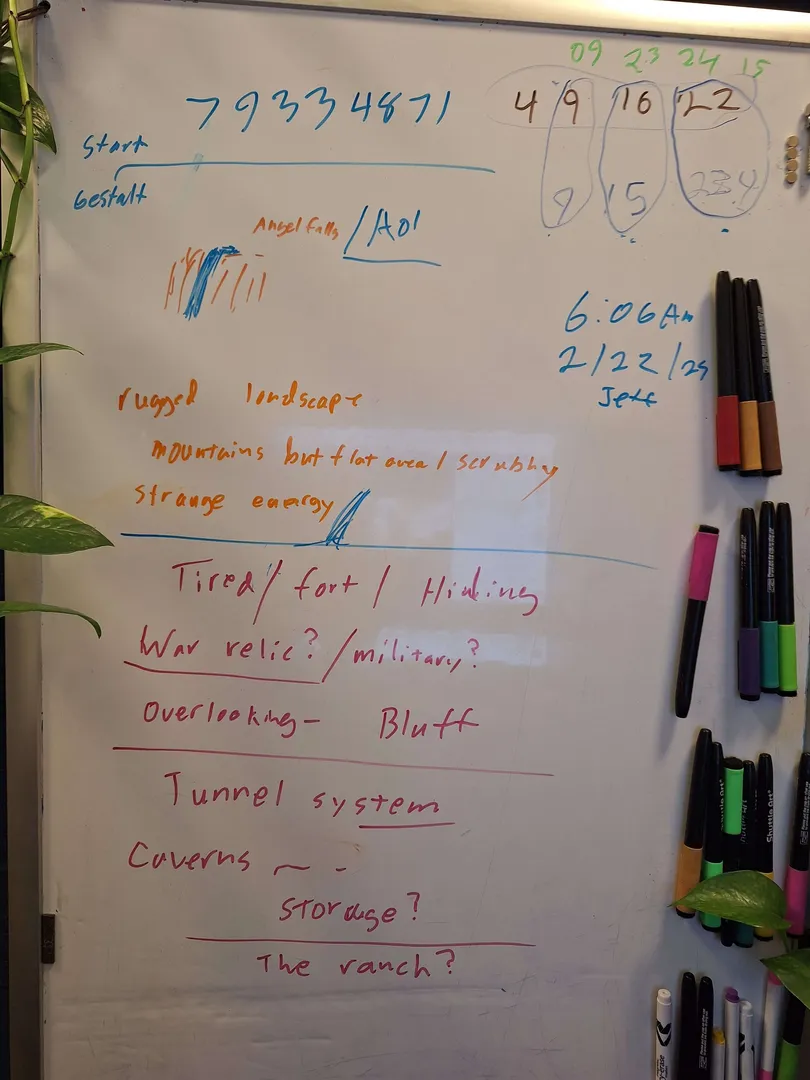 09 23 24 15
79334871
4 9 16 22
Start
9 15 23 4
Gestalt
Angel falls /AOl
6:06Am
2/22/25
Jeff
rugged landscape
mountains but flat area / scrubby
strange energy
Tired / fort / Hiding
War relic? / military?
Overlooking- Bluff
Tunnel system
Caverns
storage?
The ranch?
Shuttle Art